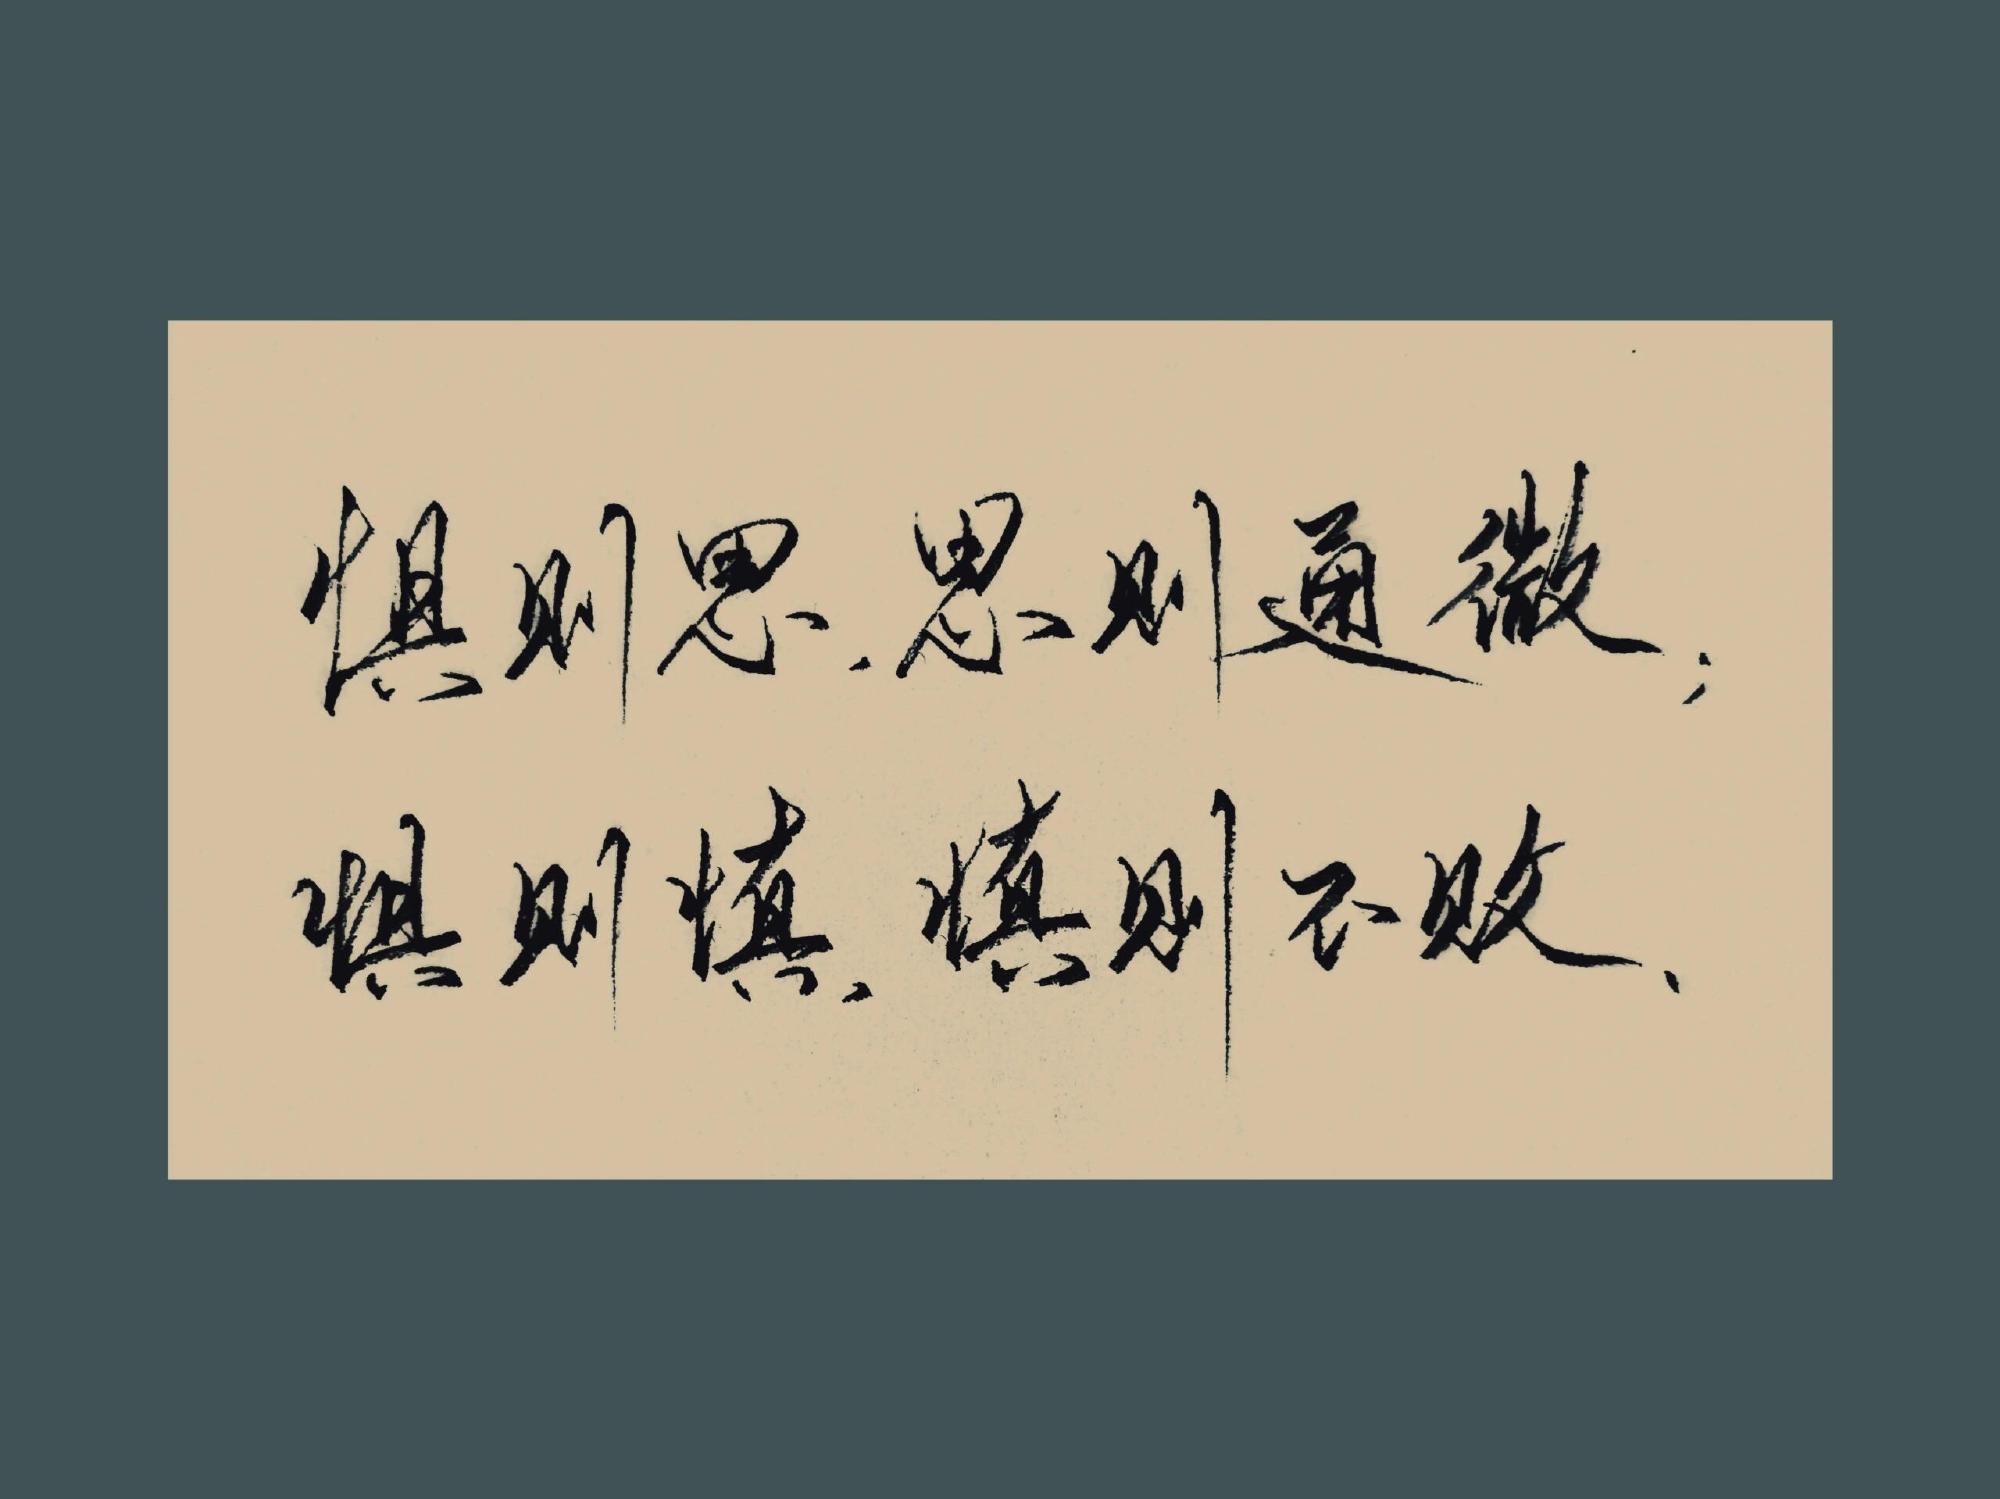 惧则思，思则通微；
惧则慎，慎则不败、